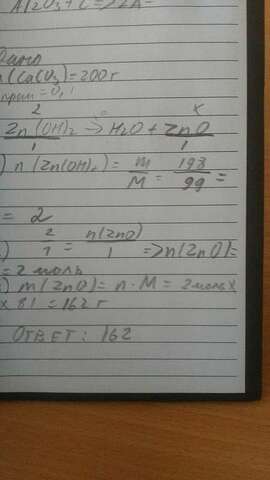 Al2O3 + C => 2A-
Дано
m(CaCO3)=200г
прим = 0,1
2 x
Zn(OH)2 => H2O + ZnO
1 1
) n(Zn(OH)2) = m/M = 198/99 =
= 2
) 2/1 = n(ZnO)/1 => n(ZnO)=
= 2 моль
) m(ZnO) = n · M = 2моль x
x 81 = 162 г
Ответ: 162